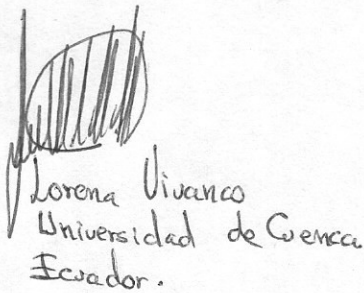 Lorena Vivanco
Universidad de Cuenca
Ecuador.